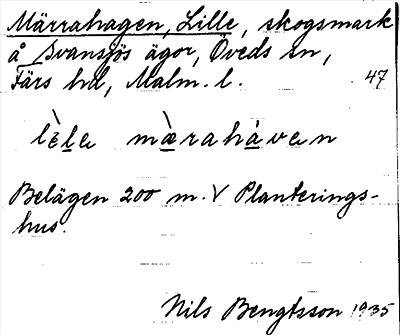 Märrahagen, Lille, skogsmark
å Svansjös ägor, Öveds sn,
Färs hd, Malm. l. 47
lèle màrahàven
Belägen 200 m. V Planterings-
hus.
Nils Bengtsson 1935